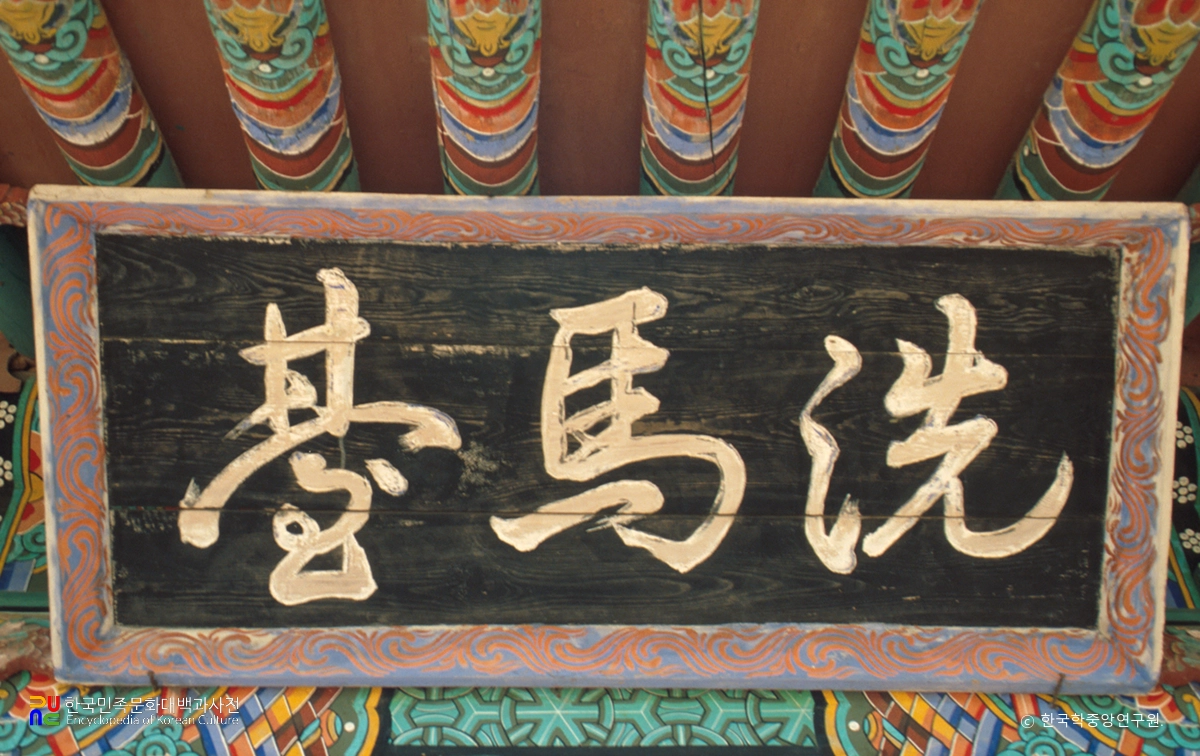 洗馬臺
한국민족문화대백과사전
Encyclopedia of Korean Culture
© 한국학중앙연구원